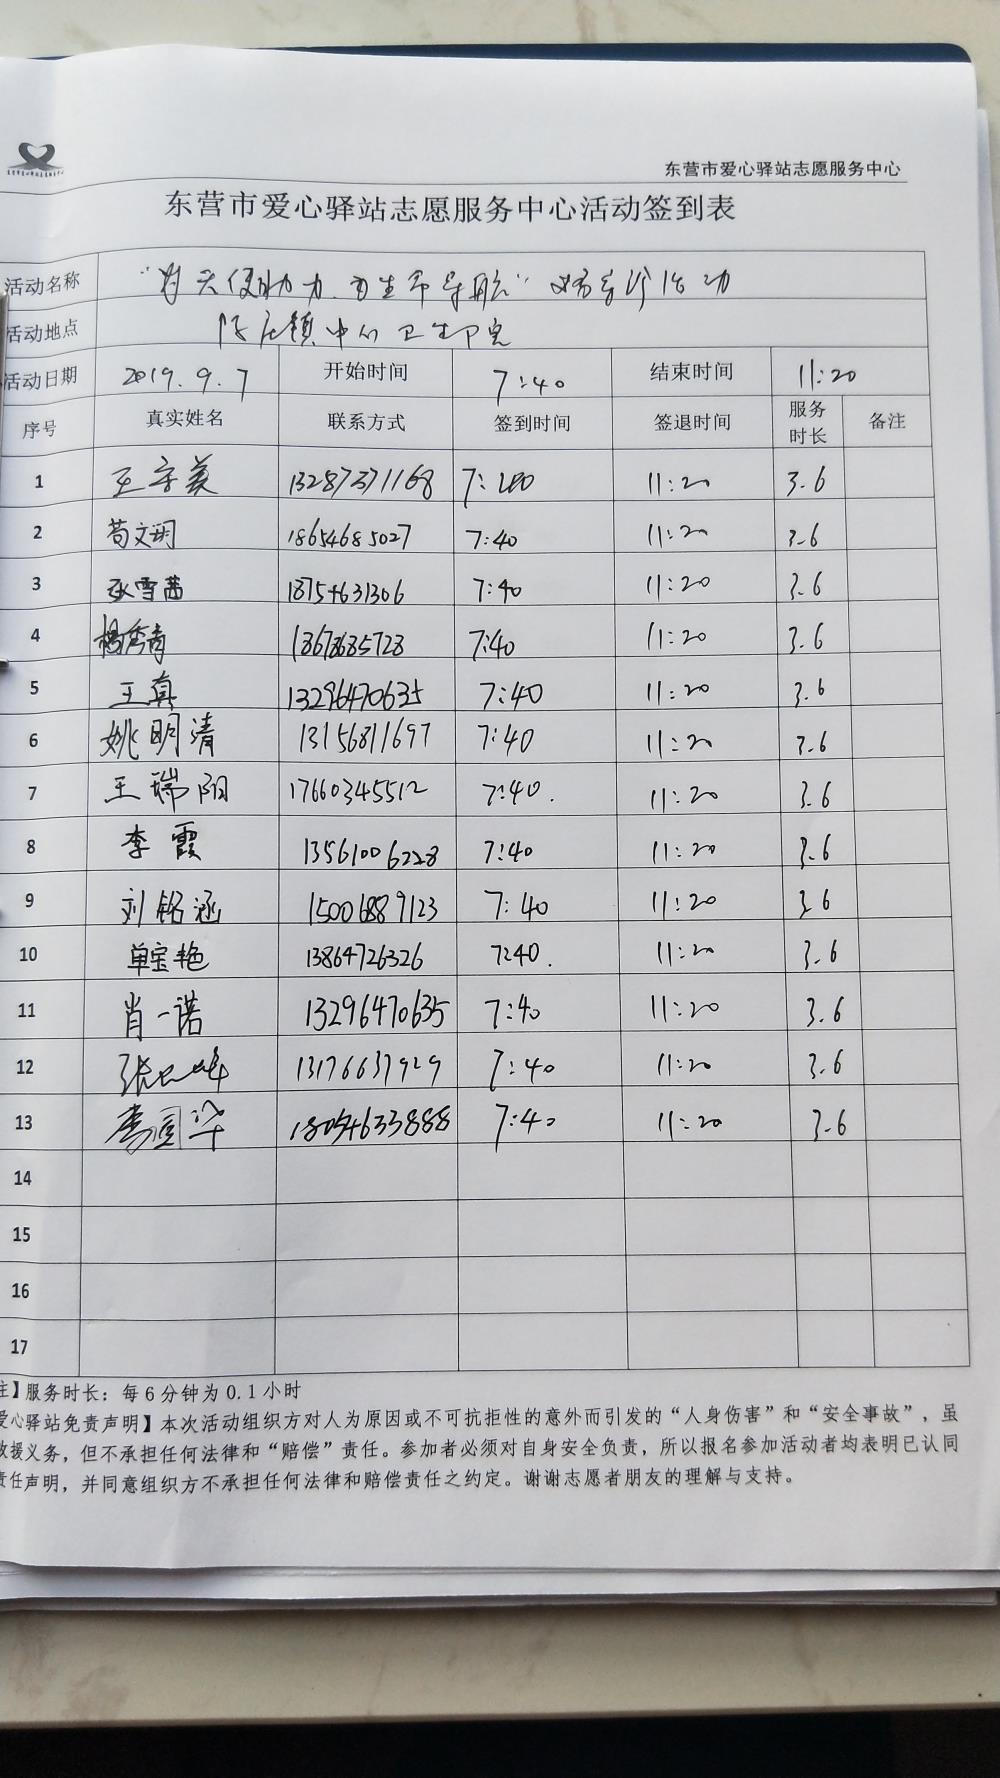 东营市爱心驿站志愿服务中心
东营市爱心驿站志愿服务中心活动签到表
活动名称 "为天使助力、为生命导航" 活动
活动地点 陈庄镇中心卫生院
活动日期 2019.9.7 开始时间 7:40 结束时间 11:20
序号 真实姓名 联系方式 签到时间 签退时间 服务时长 备注
1 王守美 13287371168 7:40 11:20 3.6
2 苟文玥 18654685027 7:40 11:20 3.6
3 张雪茜 18754631306 7:40 11:20 3.6
4 杨秀青 13678685728 7:40 11:20 3.6
5 王真 13296470635 7:40 11:20 3.6
6 姚明清 13156811697 7:40 11:20 3.6
7 王瑞阳 17660345512 7:40. 11:20 3.6
8 李霞 13561006228 7:40 11:20 3.6
9 刘铭涵 15006889123 7:40 11:20 3.6
10 单宝艳 13864726326 7:40. 11:20 3.6
11 肖一诺 13296470635 7:40 11:20 3.6
12 张 13176637929 7:40 11:20 3.6
13 18054633888 7:40 11:20 3.6
14
15
16
17
注】服务时长：每6分钟为0.1小时
爱心驿站免责声明】本次活动组织方对人为原因或不可抗拒性的意外而引发的“人身伤害”和“安全事故”，虽
救援义务，但不承担任何法律和“赔偿”责任。参加者必须对自身安全负责，所以报名参加活动者均表明已认同
责任声明，并同意组织方不承担任何法律和赔偿责任之约定。谢谢志愿者朋友的理解与支持。